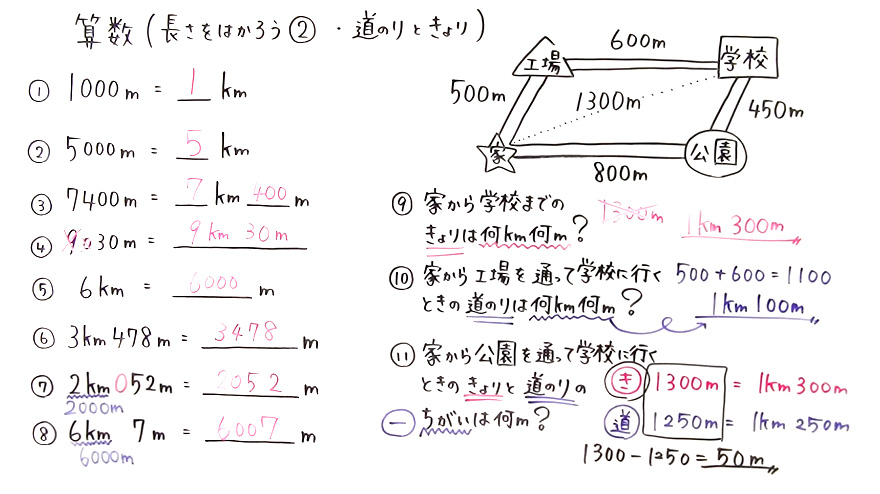 算数 (長さをはかろう② ・道のりときょり)
① 1000m = 1 km
② 5000m = 5 km
③ 7400m = 7 km 400 m
④ 9030m = 9km 30m
⑤ 6km = 6000 m
⑥ 3km478m = 3478 m
⑦ 2km052m = 2052 m
2000m
⑧ 6km 7m = 6007 m
6000m
600m
工場
学校
500m
1300m
450m
家
公園
800m
⑨ 家から学校までの
きょりは何km何m?
1300m
1km 300m
⑩ 家から工場を通って学校に行く
ときの道のりは何km何m?
500+600=1100
1km100m
⑪ 家から公園を通って学校に行く
ときのきょりと道のりの
ちがいは何m?
き 1300m = 1km300m
道 1250m = 1km 250m
1300-1250=50m